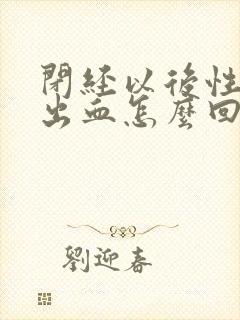 閉經以後性
出血怎麼回
劉迎春